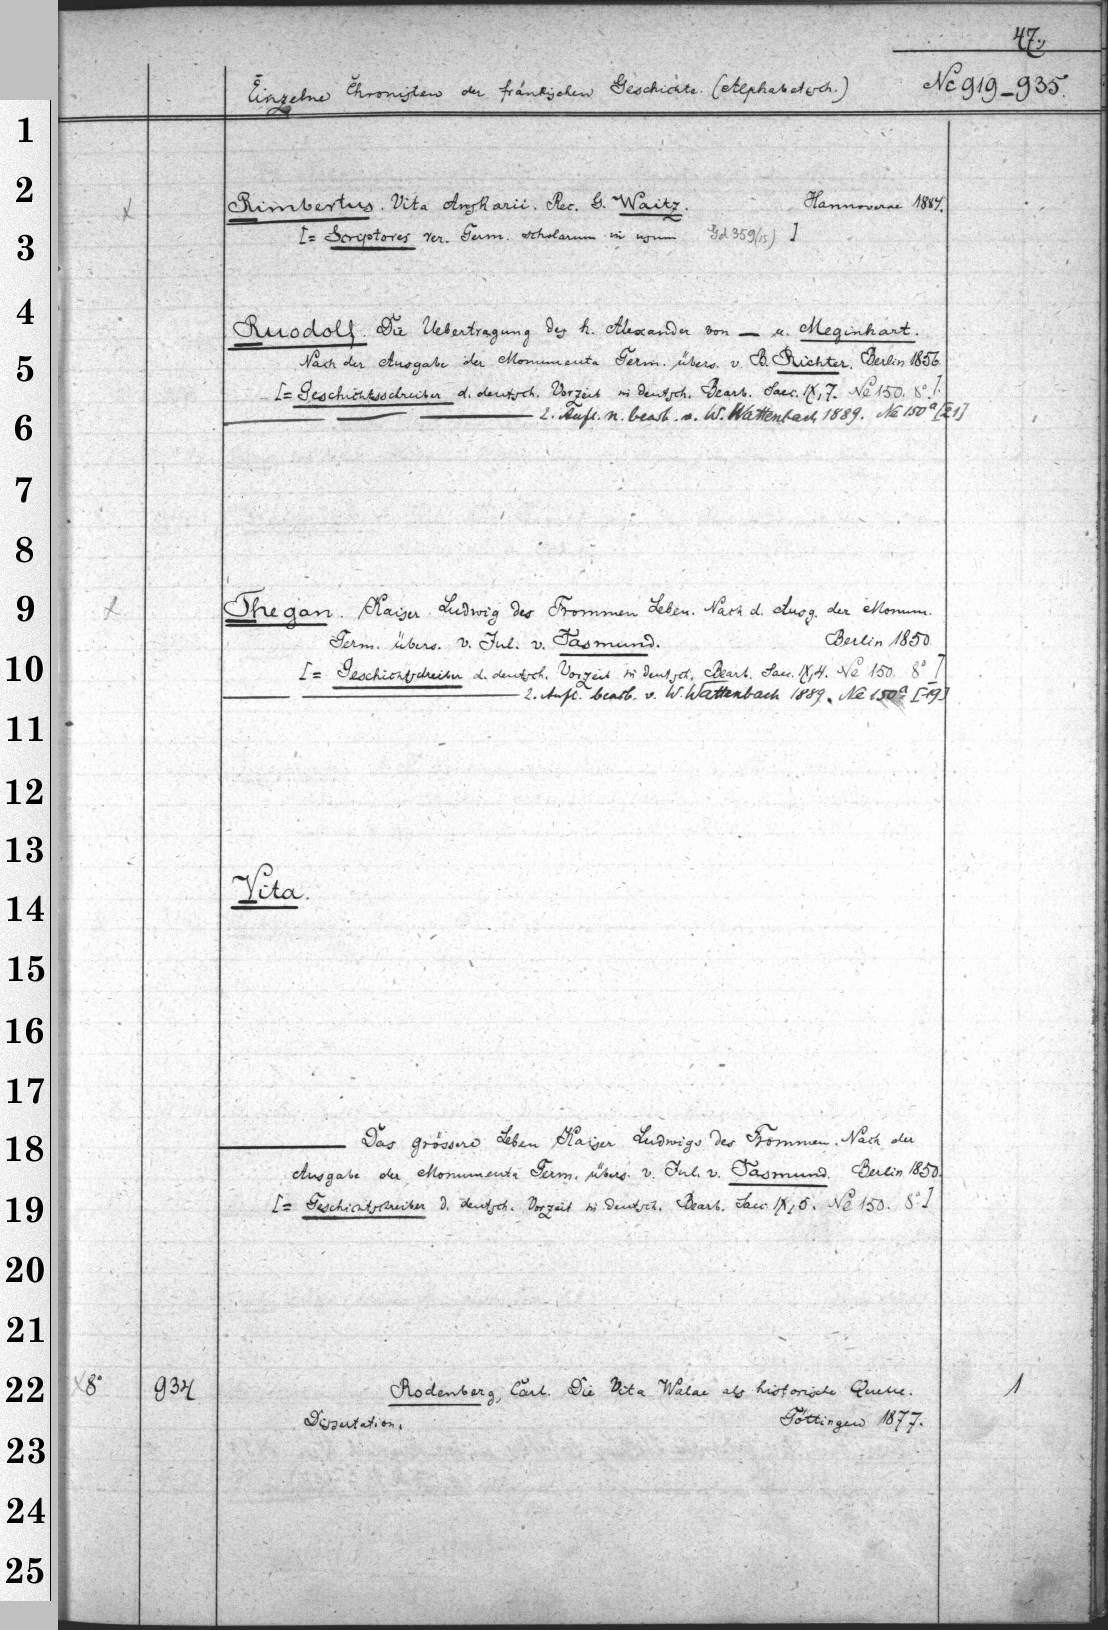 47.
Einzelne Chronisten der fränkischen Geschichte. (Alphabetisch.) Nc 919-935.
1
2
Rimbertus. Vita Anskarii. Rec. G. Waitz. Hannoverae 1884.
3
[= Scriptores rer. Germ. scholarum in usum Gd 359(15) ]
4
Ruodolf. Die Uebertragung des h. Alexander von — u. Meginhart.
5
Nach der Ausgabe der Monumenta Germ. übers. v. B. Richter. Berlin 1856
[= Geschichtsschreiber d. deutsch. Vorzeit in deutsch. Bearb. Saec. IX, 7. Nc 150. 8°.]
6
— — 2. Aufl. n. bearb. v. W. Wattenbach 1889. Nc 150a [21]
7
8
9
x Thegan. Kaiser Ludwig des Frommen Leben. Nach d. Ausg. der Monum.
Germ. übers. v. Jul. v. Jasmund. Berlin 1850
10
[= Geschichtschreiber d. deutsch. Vorzeit in deutsch. Bearb. Saec. IX, 4. Nc 150. 8° ]
— — 2. Aufl. bearb. v. W. Wattenbach 1889. Nc 150a [19]
11
12
13
14
Vita.
15
16
17
18
— Das grössere Leben Kaiser Ludwigs des Frommen. Nach der
Ausgabe der Monumenta Germ. übers. v. Jul. v. Jasmund. Berlin 1850.
19
[= Geschichtschreiber d. deutsch. Vorzeit in deutsch. Bearb. Saec. IX, 5. Nc 150. 8°]
20
21
22
x 8° 934 Rodenberg, Carl. Die Vita Walae als historische Quelle. 1
Dissertation. Göttingen 1877.
23
24
25